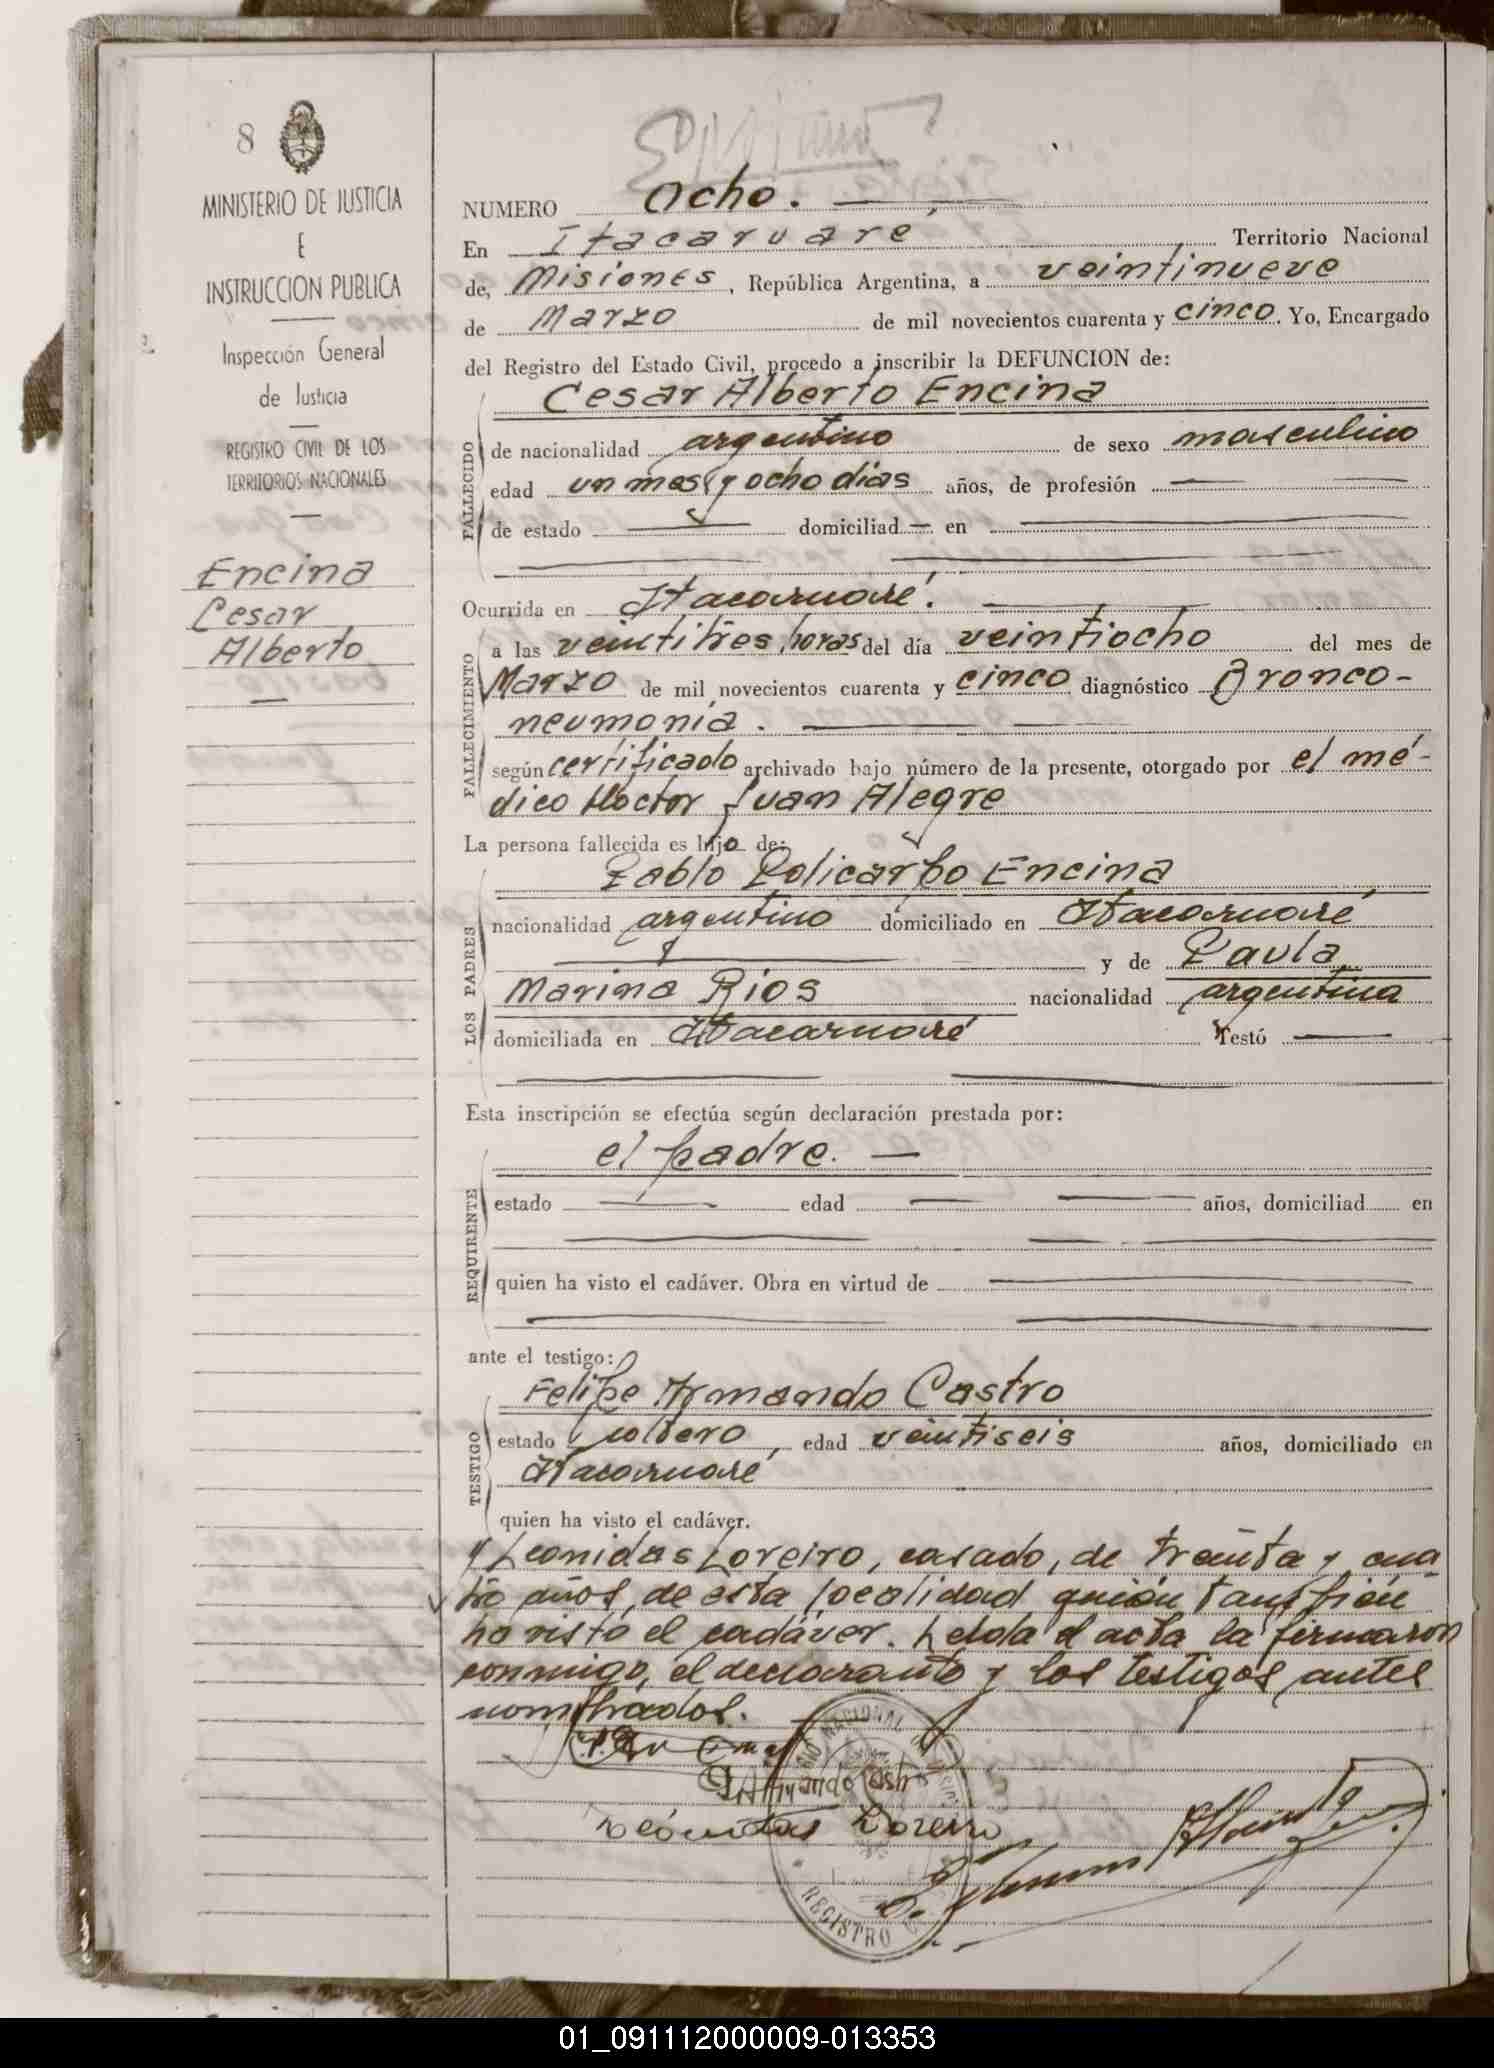 8
MINISTERIO DE JUSTICIA
E
INSTRUCCION PUBLICA
Inspección General
de Justicia
REGISTRO CIVIL DE LOS
TERRITORIOS NACIONALES
Encina
Cesar
Alberto
NUMERO Ocho.
En Itacaruaré Territorio Nacional
de, Misiones, República Argentina, a veintinueve
de Marzo de mil novecientos cuarenta y cinco. Yo, Encargado
del Registro del Estado Civil, procedo a inscribir la DEFUNCION de:
Cesar Alberto Encina
FALLECIDO
de nacionalidad argentino de sexo masculino
edad un mes y ocho dias años, de profesión —
de estado — domiciliad — en —
Ocurrida en Itacaruaré.
FALLECIMIENTO
a las veintitres horas del día veintiocho del mes de
Marzo de mil novecientos cuarenta y cinco diagnóstico Bronco-
neumonia.
según certificado archivado bajo número de la presente, otorgado por el mé-
dico Doctor Juan Alegre
La persona fallecida es hijo de:
Pablo Policarpo Encina
LOS PADRES
nacionalidad argentino domiciliado en Itacaruaré
y de Paula
Marina Rios nacionalidad argentina
domiciliada en Itacaruaré Testó —
Esta inscripción se efectúa según declaración prestada por:
el padre. —
REQUIRENTE
estado — edad — años, domiciliad en
quien ha visto el cadáver. Obra en virtud de —
ante el testigo:
Felipe Armando Castro
TESTIGO
estado soltero, edad veintiseis años, domiciliado en
Itacaruaré
quien ha visto el cadáver.
y Leonidas Loreiro, casado, de treinta y cua
tro años, de esta localidad quién también
ha visto el cadáver. Leida el acta la firmaron
conmigo, el declarante y los testigos antes
nombrados.
F. Armando Castro
Leónidas Loreiro
REGISTRO
01_091112000009-013353